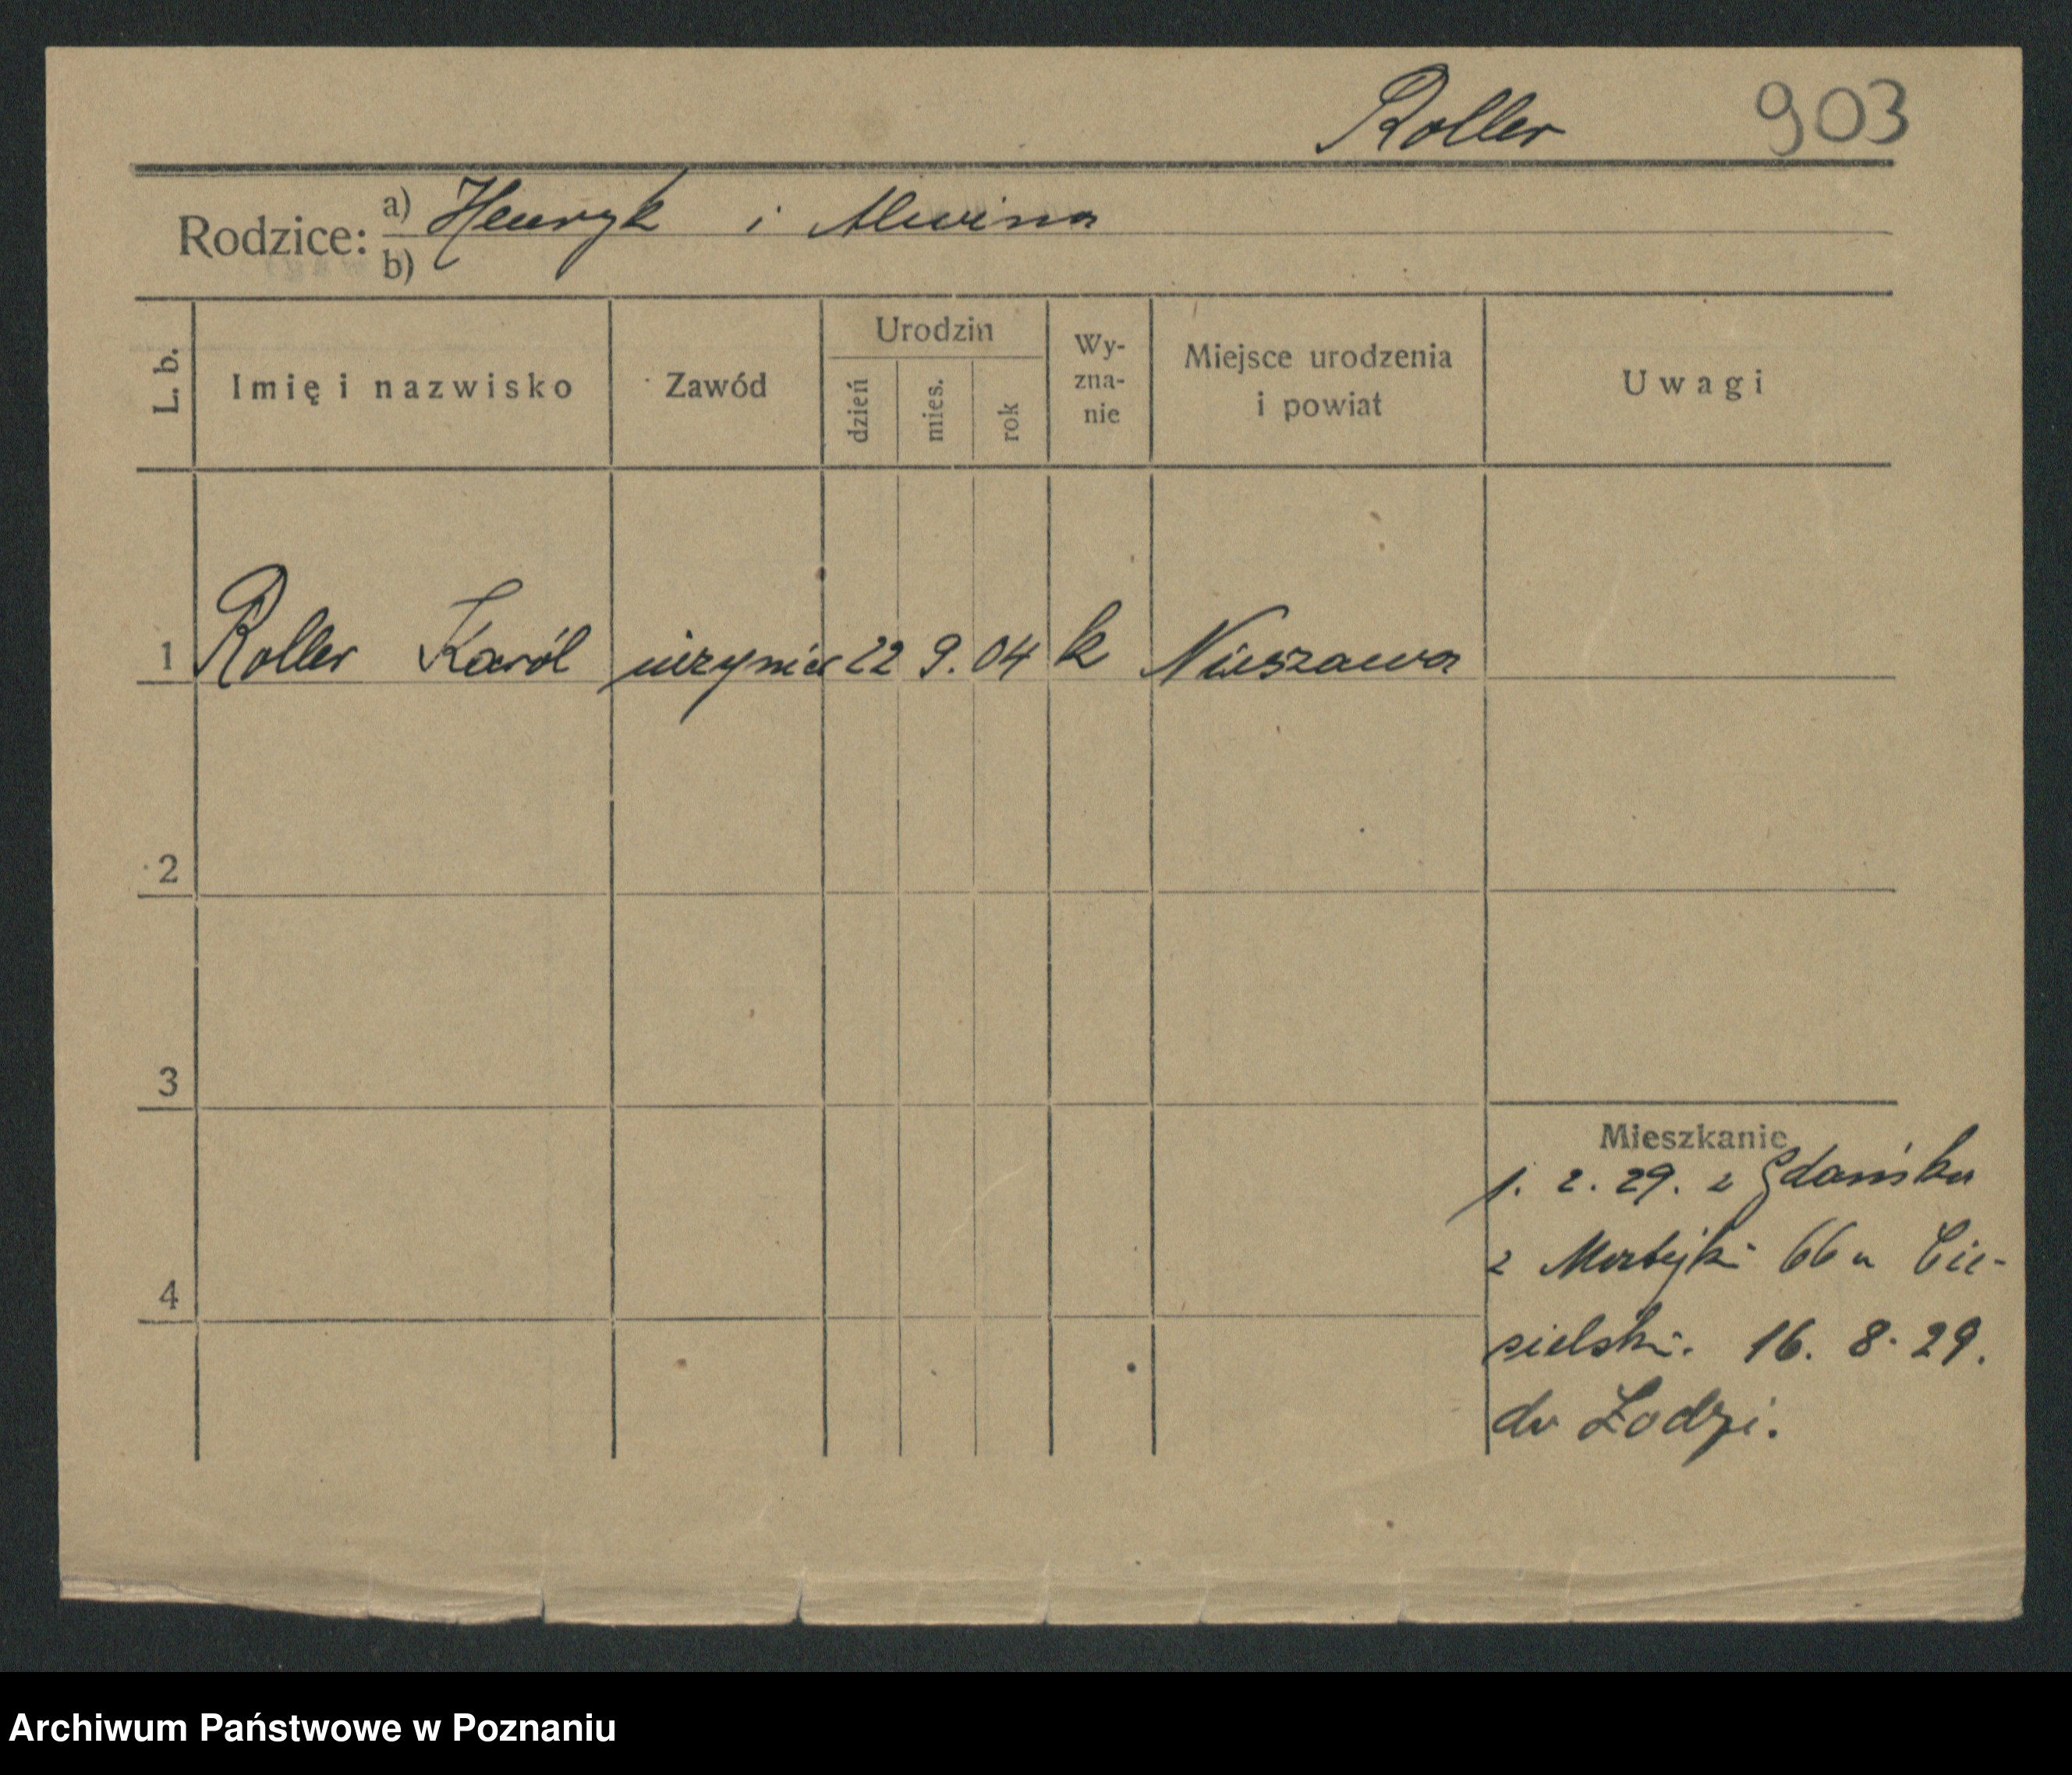 Roller 903
Rodzice: a) Henryk i Alwina
b)
L. b. Imię i nazwisko Zawód Urodzin dzień mies. rok Wy-zna-nie Miejsce urodzenia i powiat Uwagi
1 Roller Karól inżynier 22 9. 04 k Nieszawa
2
3
Mieszkanie
1. 2. 29. z Gdańska
4
z 66 u Cie-
sielski. 16. 8. 29.
do Łodzi.
Archiwum Państwowe w Poznaniu